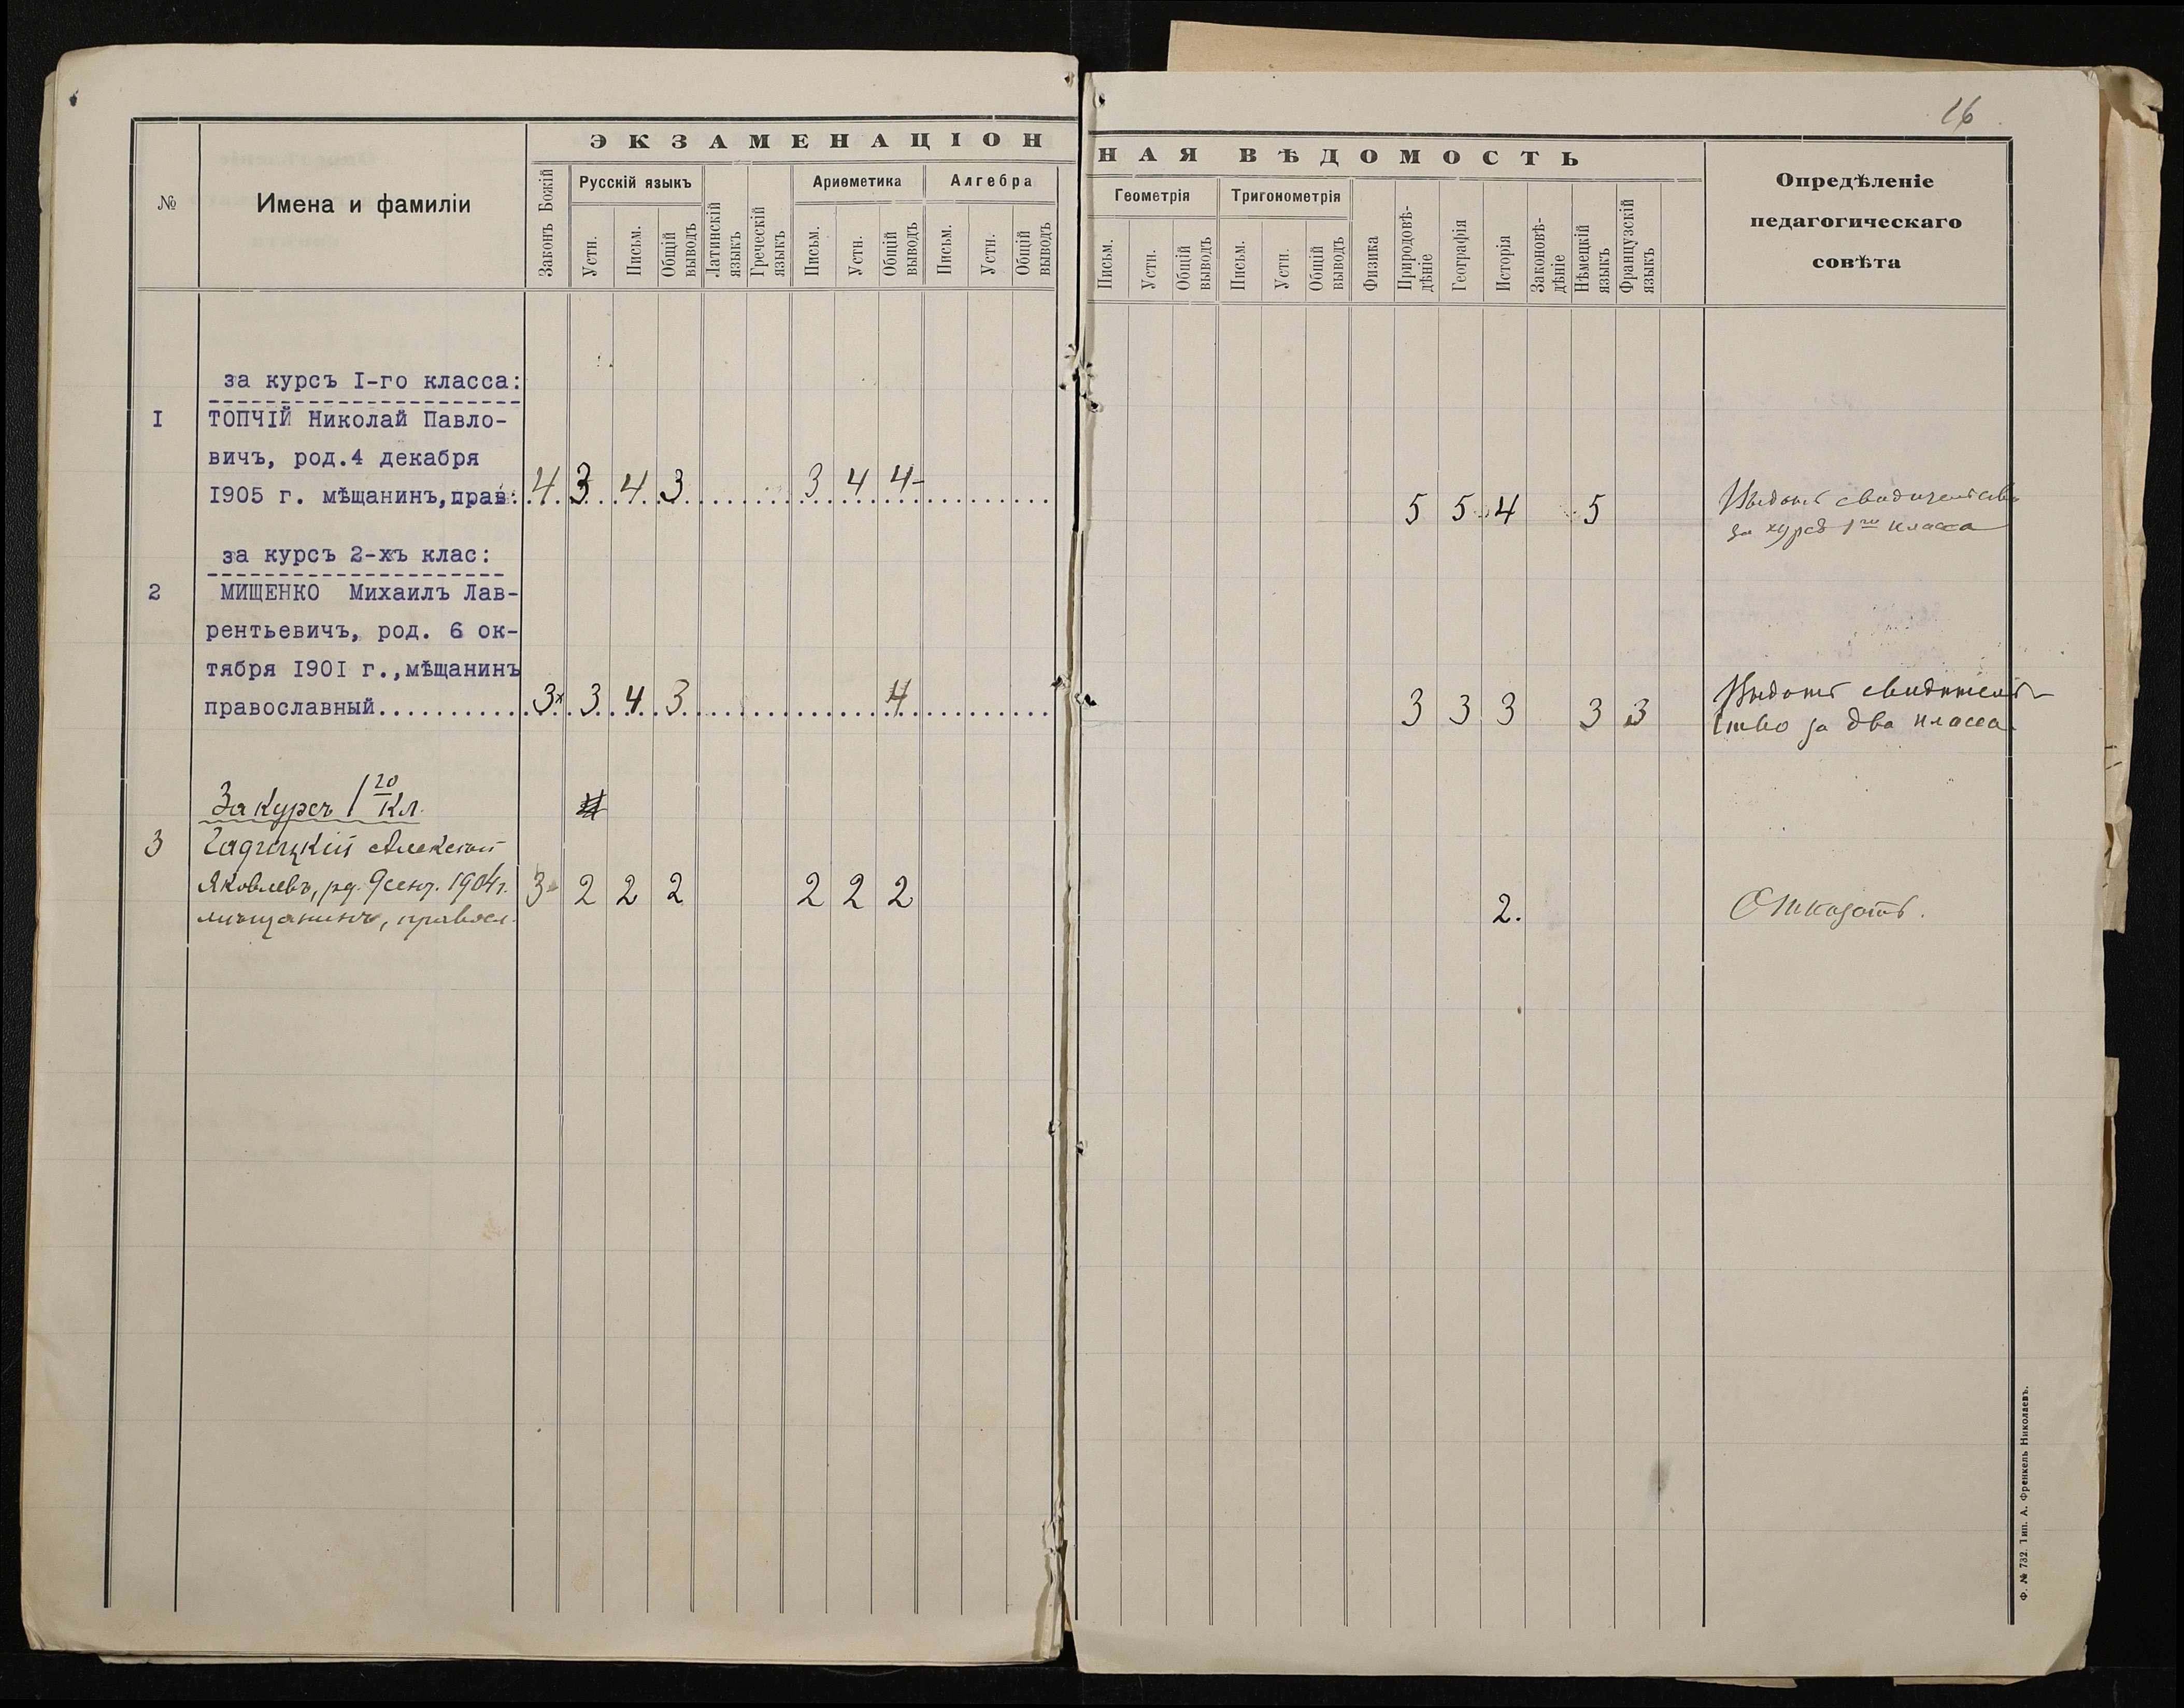 16
ЭКЗАМЕНАЦІОННАЯ ВѢДОМОСТЬ
№
Имена и фамиліи
Законъ Божій
Русскій языкъ
Устн.
Письм.
Общій выводъ
Латинскій языкъ
Греческій языкъ
Ариѳметика
Письм.
Устн.
Общій выводъ
Алгебра
Письм.
Устн.
Общій выводъ
Геометрія
Письм.
Устн.
Общій выводъ
Тригонометрія
Письм.
Устн.
Общій выводъ
Физика
Природовѣ-
дѣніе
Географія
Исторія
Законовѣ-
дѣніе
Нѣмецкій языкъ
Французскій языкъ
Опредѣленіе
педагогическаго
совѣта
за курсъ I-го класса:
I ТОПЧІЙ Николай Павло-
вичъ, род.4 декабря
1905 г. мѣщанинъ,прав. 4 3 4 3 3 4 4- 5 5 4 5
Выдать свидѣтельство
за курсъ 1го класса
за курсъ 2-хъ клас:
2 МИЩЕНКО Михаилъ Лав-
рентьевичъ, род. 6 ок-
тября 1901 г.,мѣщанинъ
православный........... 3 3 4 3 4 3 3 3 3 3
Выдать свидѣтель-
ство за два класса.
За курсъ 1го кл.
3 Алексѣй
Яковлевъ, рд. 9 сент. 1904 г. 3 2 2 2 2 2 2 2.
мѣщанинъ, правосл.
Отказать.
Ф. № 732. Тип. А. Френкель Николаевъ.